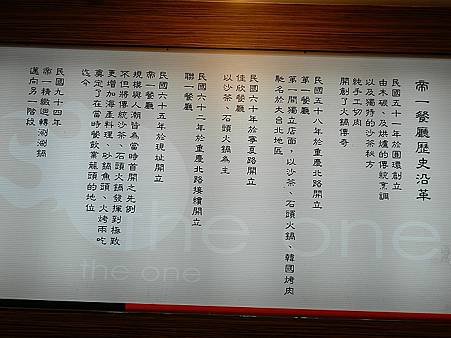 帝一餐廳歷史沿革
民國五十一年於圓環創立
由木碳、及烘爐的傳統烹調
以及獨特的沙茶秘方
純手工切肉
開創了火鍋傳奇
民國五十八年於重慶北路開立
第一餐廳
第一間獨立店面，以沙茶、石頭火鍋、韓國烤肉
馳名於大台北地區
民國六十年於寧夏路開立
佳欣餐廳
以沙茶、石頭火鍋為主
民國六十二年於重慶北路接續開立
聯一餐廳
民國六十五年於現址開立
帝一餐廳
規模與人潮皆為當時首開之先例
不但將傳統沙茶、石頭火鍋發揮到極致
更增加海產料理、砂鍋魚頭、火烤兩吃
奠定了在當時餐飲業龍頭的地位
迄今
民國九十四年
帝一精緻迴轉涮涮鍋
邁向另一階段
the one
the one